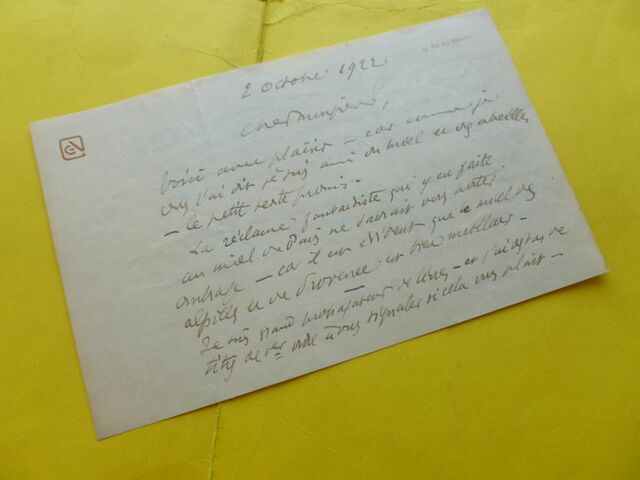 2 Octobre 1922
Cher Monsieur,
Voici avec plaisir – car comme je
vous l'ai dit je suis ami du miel et des abeilles
– le petit texte promis –
La réclame fantaisiste que y ai faite
au miel de Paris ne saurait vous porter
ombrage – car il est évident que le miel des
alpilles et de Provence est bien meilleur –
Je suis grand propagateur de livres – et j'ai des tas de
titres de 1er ordre à vous signaler si cela vous plait –